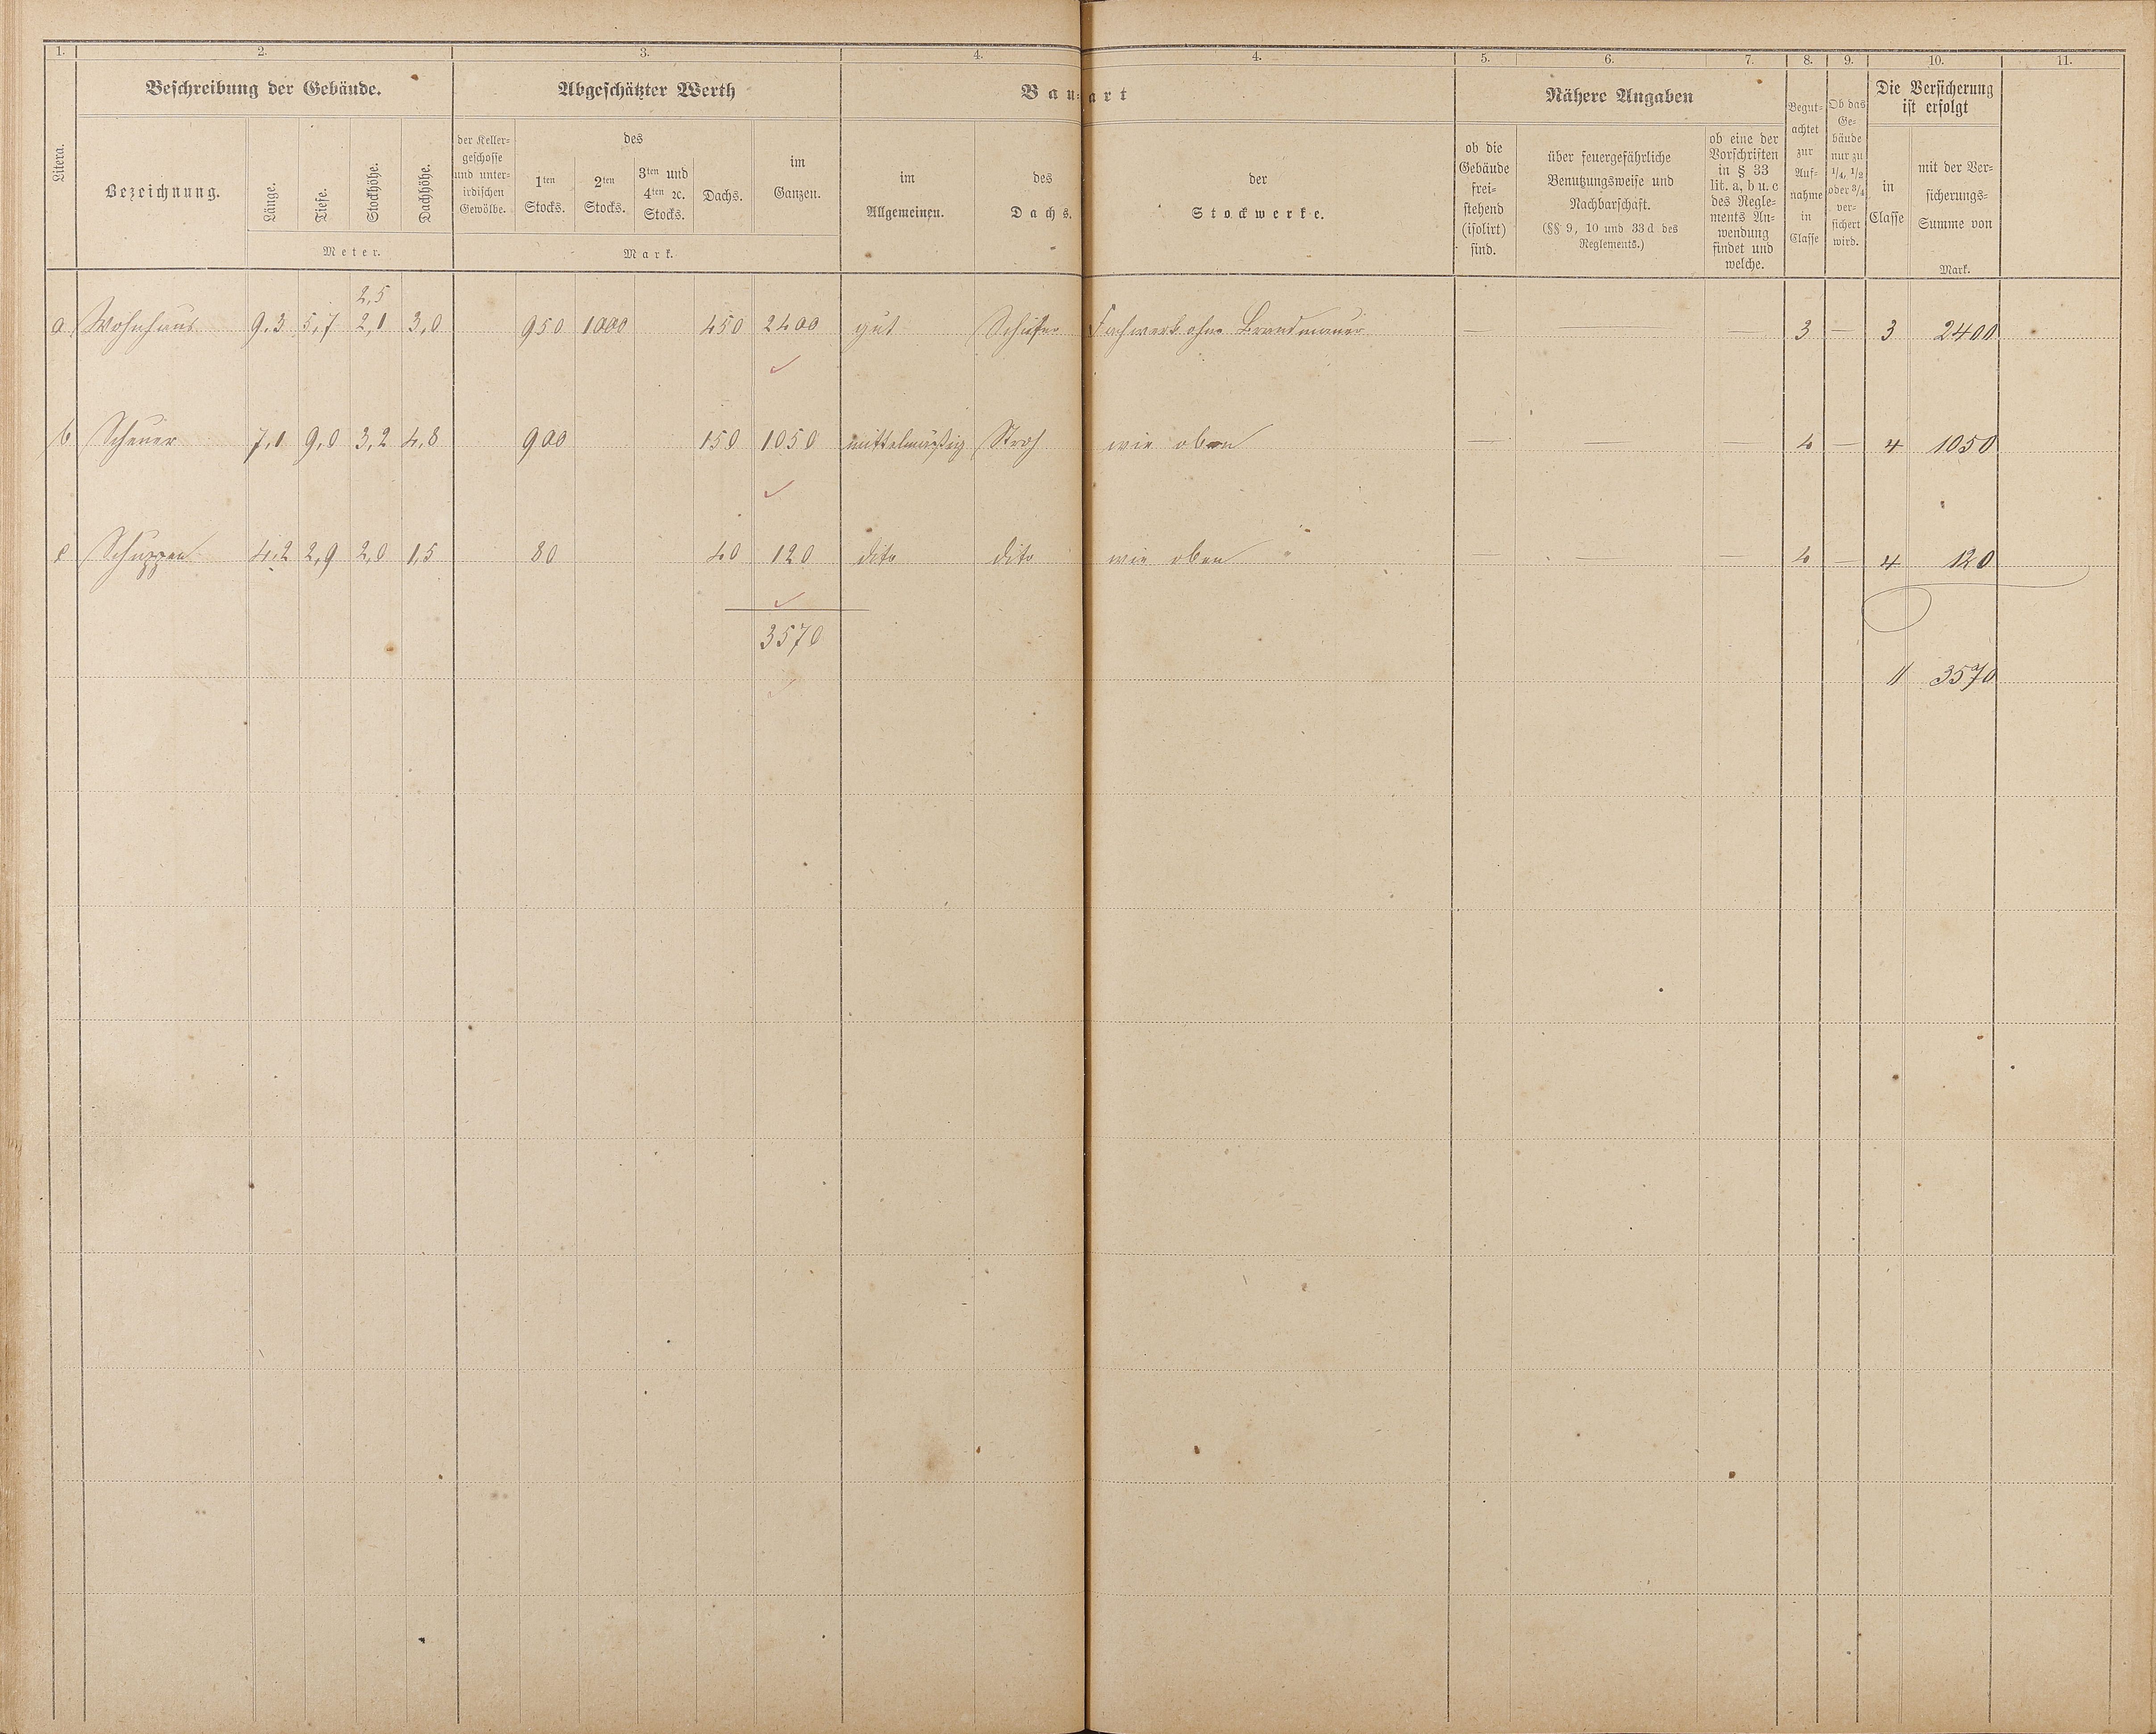 1. 2. 3. 4. 4. 5. 6. 7. 8. 9. 10. 11.
Litera.
Beschreibung der Gebäude.
Bezeichnung.
Länge.
Tiefe.
Stockhöhe.
Dachhöhe.
Meter.
Abgeschätzter Werth
der Keller-
geschosse
und unter-
irdischen
Gewölbe.
des
1ten
Stocks.
2ten
Stocks.
3ten und
4ten ꝛc.
Stocks.
Dachs.
im
Ganzen.
Mark.
Bau-art
im
Allgemeinen.
des
Dachs.
der
Stockwerke.
Nähere Angaben
ob die
Gebäude
frei-
stehend
(isolirt)
sind.
über feuergefährliche
Benutzungsweise und
Nachbarschaft.
(§§ 9, 10 und 33d des
Reglements.)
ob eine der
Vorschriften
in § 33
lit. a, b u. c
des Regle-
ments An-
wendung
findet und
welche.
Begut-
achtet
zur
Auf-
nahme
in
Classe
Ob das
Ge-
bäude
nur zu
1/4, 1/2
oder 3/4
ver-
sichert
wird.
Die Versicherung
ist erfolgt
in
Classe
mit der Ver-
sicherungs-
Summe von
Mark.
2,5
a Wohnhaus 9.3 5,7 2,1 3,0 950 1000 450 2400 gut Schiefer Fachwerk ohne Brandmauer — — — 3 — 3 2400
b Scheuer 7,1 9,0 3,2 4,8 900 150 1050 mittelmäßig Stroh wie oben — — — 4 — 4 1050
c Schuppen 4.2 2,9 2,0 1,5 80 40 120 dito dito wie oben — — — 4 — 4 120
3570
11 3570